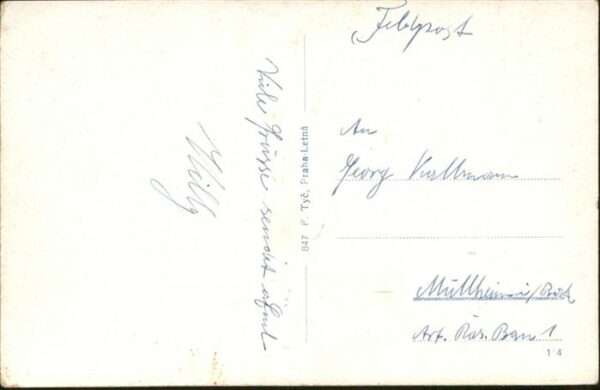 Feldpost
Viele Grüsse sendet
Willy
847 F. Tyč, Praha-Letná
An
Georg Kallmann
Müllheim/Bad
Art. Res.
1 4